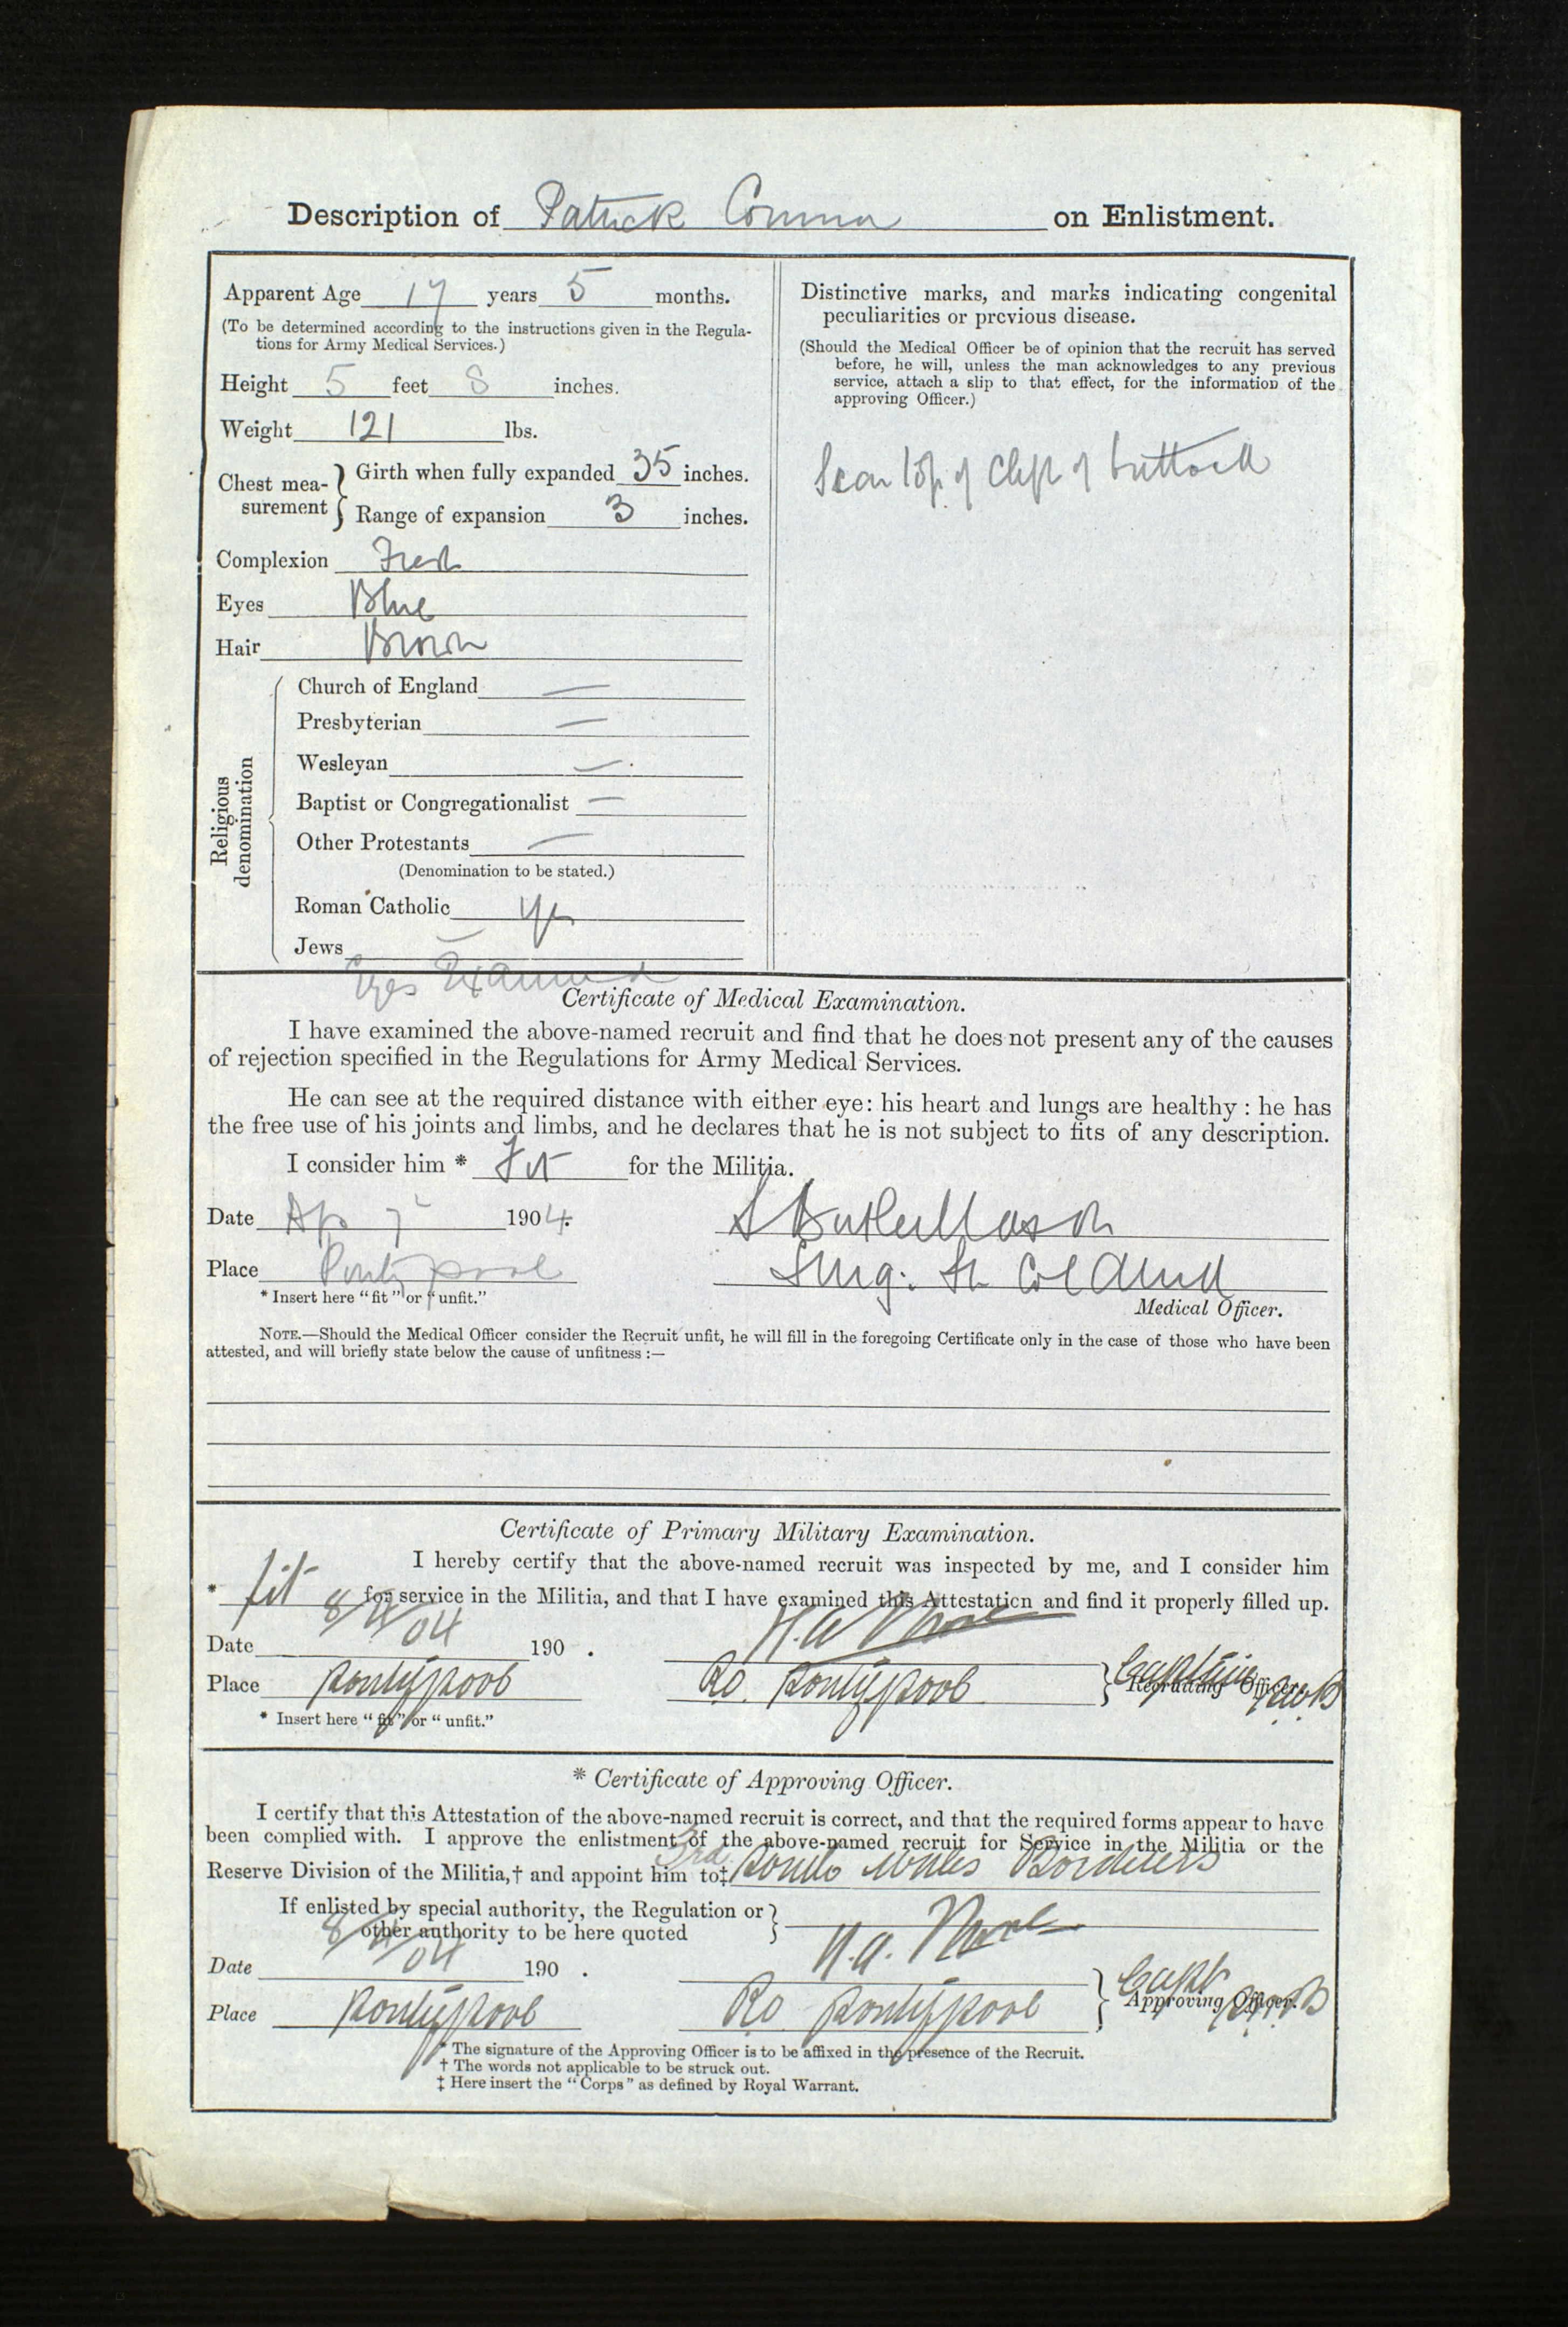 Description of Patrick Connor on Enlistment.
Apparent Age 17 years 5 months.
(To be determined according to the instructions given in the Regula-
tions for Army Medical Services.)
Height 5 feet 8 inches.
Weight 121 lbs.
Chest mea-
surement
Girth when fully expanded 35 inches.
Range of expansion 3 inches.
Complexion Fresh
Eyes Blue
Hair Brown
Religious
denomination
Church of England —
Presbyterian —
Wesleyan —
Baptist or Congregationalist —
Other Protestants —
(Denomination to be stated.)
Roman Catholic Yes
Jews —
Distinctive marks, and marks indicating congenital
peculiarities or previous disease.
(Should the Medical Officer be of opinion that the recruit has served
before, he will, unless the man acknowledges to any previous
service, attach a slip to that effect, for the information of the
approving Officer.)
Scar top of cleft of buttock
Eyes Examined
Certificate of Medical Examination.
I have examined the above-named recruit and find that he does not present any of the causes
of rejection specified in the Regulations for Army Medical Services.
He can see at the required distance with either eye: his heart and lungs are healthy: he has
the free use of his joints and limbs, and he declares that he is not subject to fits of any description.
I consider him * Fit for the Militia.
Date Ap 7 1904.
S Butler Mason
Place Pontypool
Surg. Lt Col
* Insert here "fit" or "unfit."
Medical Officer.
NOTE.—Should the Medical Officer consider the Recruit unfit, he will fill in the foregoing Certificate only in the case of those who have been
attested, and will briefly state below the cause of unfitness:—
Certificate of Primary Military Examination.
I hereby certify that the above-named recruit was inspected by me, and I consider him
* fit for service in the Militia, and that I have examined this Attestation and find it properly filled up.
Date 8/4/04 190 .
H.A.
Place Pontypool
RO Pontypool
Captain
Recruiting Officer.
* Insert here "fit" or "unfit."
* Certificate of Approving Officer.
I certify that this Attestation of the above-named recruit is correct, and that the required forms appear to have
been complied with. I approve the enlistment of the above-named recruit for Service in the Militia or the
Reserve Division of the Militia,† and appoint him to‡ 3rd South Wales Borderers
If enlisted by special authority, the Regulation or
other authority to be here quoted
Date 8/4/04 190 .
H.A.
Place Pontypool
RO Pontypool
Capt
Approving Officer.
* The signature of the Approving Officer is to be affixed in the presence of the Recruit.
† The words not applicable to be struck out.
‡ Here insert the "Corps" as defined by Royal Warrant.